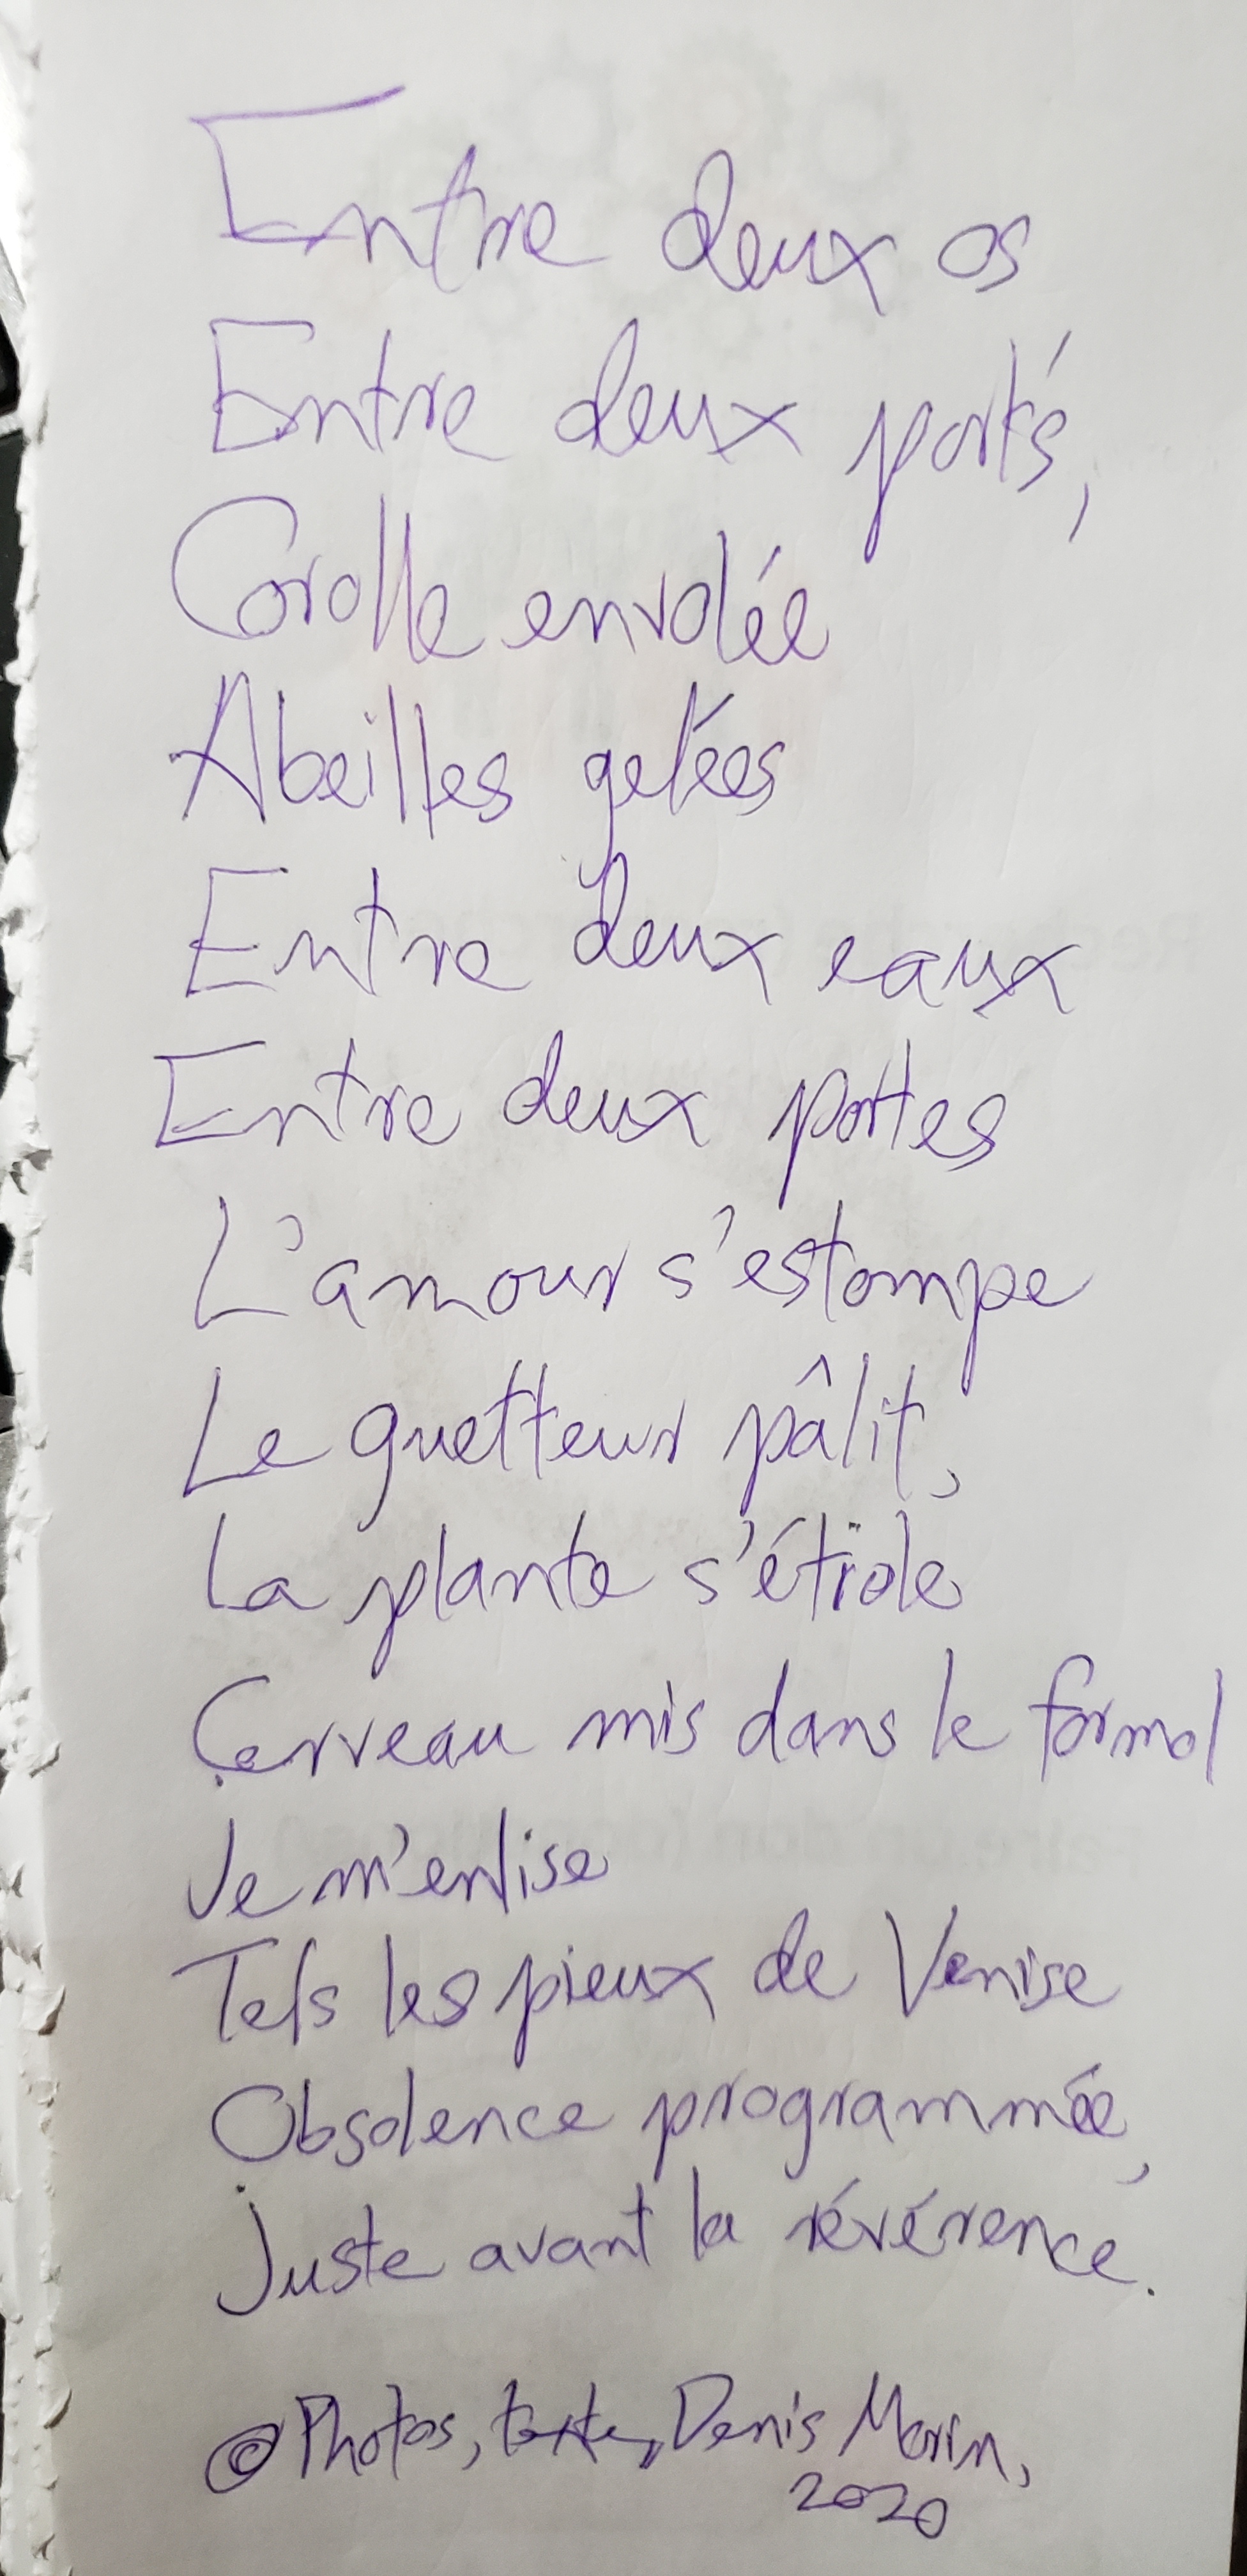 Entre deux os
Entre deux portés,
Corolle envolée
Abeilles gelées
Entre deux eaux
Entre deux portes
L'amour s'estompe
Le guetteur pâlit,
La plante s'étiole
Cerveau mis dans le formol
Je m'enlise
Tels les pieux de Venise
Obsolence programmée,
Juste avant la révérence.
© Photos, texte, Denis Morin,
2020